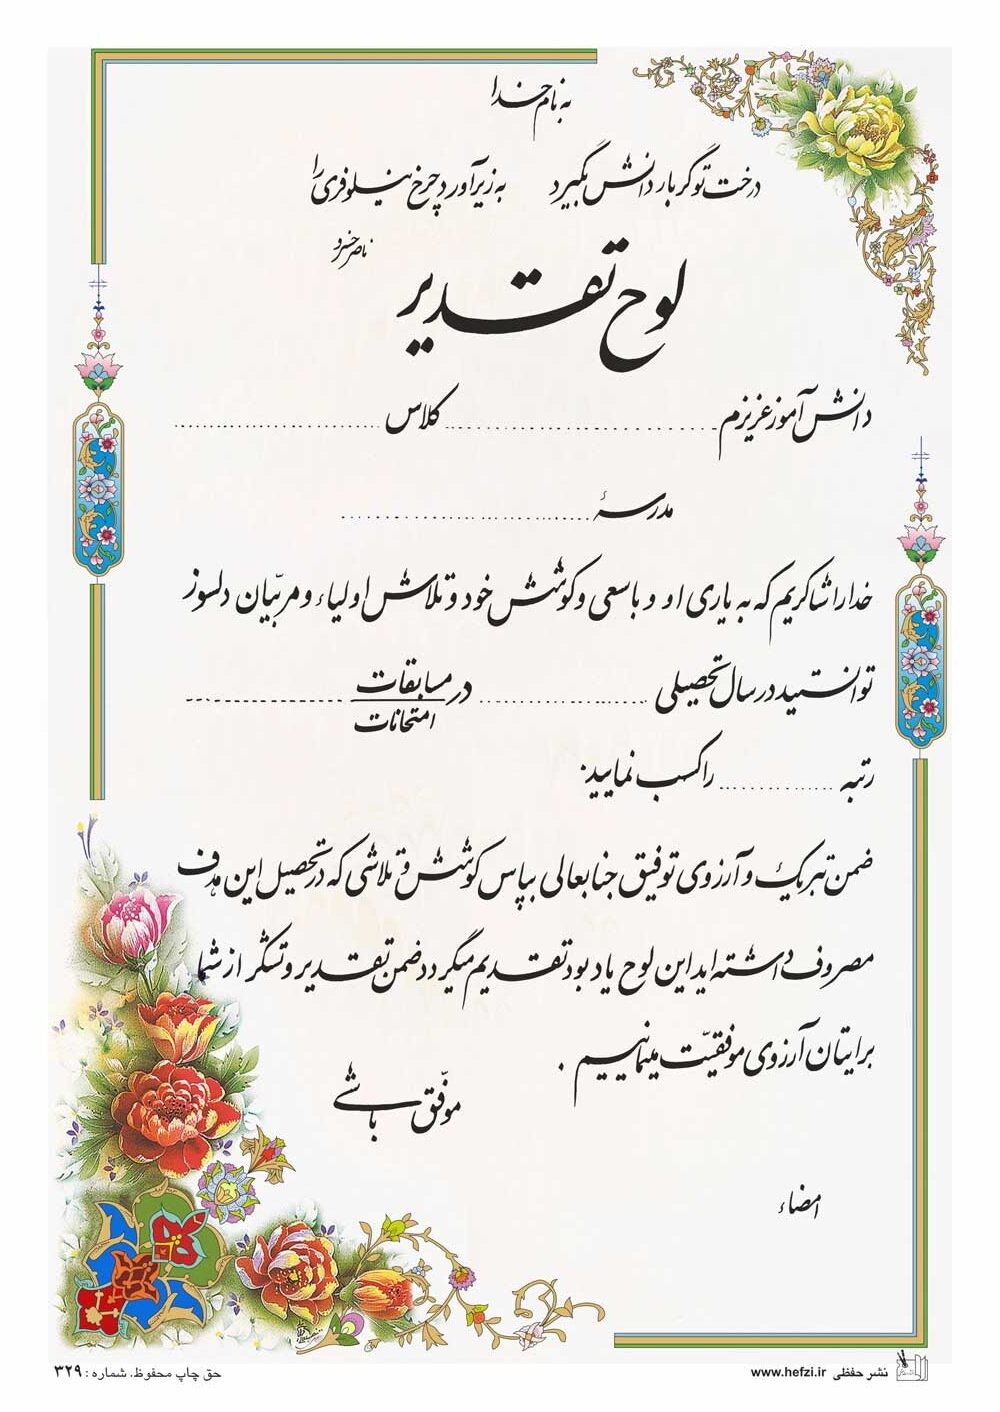 به نام خدا
درخت تو گر بار دانش بگیرد به زیر آورد چرخ نیلوفری را
ناصر خسرو
لوح تقدیر
دانش آموز عزیزم ........................ کلاس ........................
مدرسهٔ ........................
خدا را شاکریم که به یاری او و با سعی و کوشش خود و تلاش اولیاء و مربّیان دلسوز
توانستید در سال تحصیلی ........................ در مسابقات ........................
امتحانات
رتبه ............ را کسب نمایید.
ضمن تبریک و آرزوی توفیق جنابعالی بپاس کوشش و تلاشی که در تحصیل این هدف
مصروف داشته اید این لوح یادبود تقدیم میگردد ضمن تقدیر و تشکر از شما
برایتان آرزوی موفقیّت مینمائیم .
موفّق باشی
امضاء
نشر حفظی www.hefzi.ir
حق چاپ محفوظ. شماره : ۳۲۹